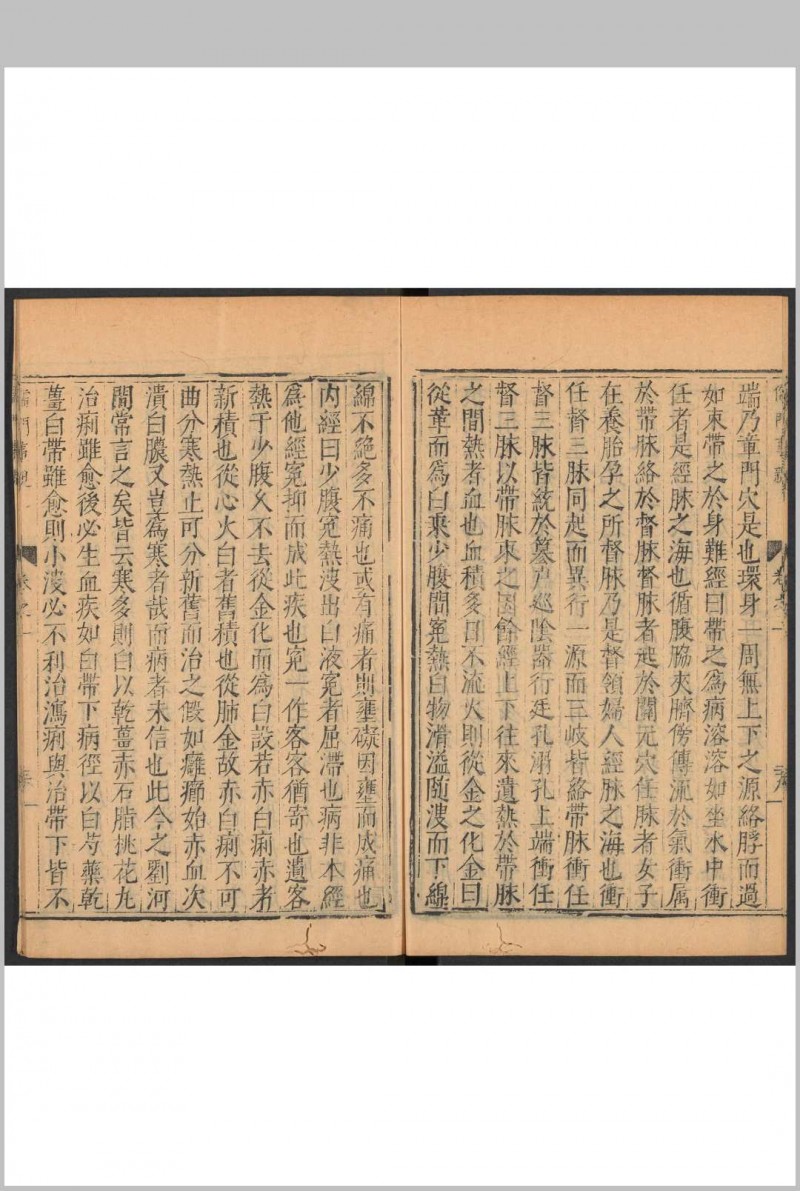 端乃章門穴是也環身一周無上下之源絡脬而過
如束帶之於身難經曰帶之爲病溶溶如坐水中衝
任者是經脉之海也循腹脇夾臍傍傳流於氣衝属
於帶脉絡於督脉督脉者起於關元穴任脉者女子
在養胎孕之所督脉乃是督領婦人經脉之海也衝
任督三脉同起而異行一源而三岐皆絡帶脉衝任
督三脉皆統於篡户巡陰器行廷孔溺孔上端衝任
督三脉以帶脉束之因餘經上下往來遺熱於帶脉
之間熱者血也血積多日不流火則從金之化金曰
從革而爲白乘少腹間寃熱白物滑溢随溲而下綿
綿不絶多不痛也或有痛者則壅礙因壅而成痛也
内經曰少腹寃熱溲出白液寃者屈滯也病非本經
爲他經寃抑而成此疾也寃一作客客猶寄也遺客
熱于少腹久不去從金化而爲白設若赤白痢赤者
新積也從心火白者舊積也從肺金故赤白痢不可
曲分寒熱止可分新舊而治之假如癰癤始赤血次
潰白膿又豈爲寒者哉而病者未信也此今之劉河
間常言之矣皆云寒多則白以乾薑赤石脂桃花丸
治痢雖愈後必生血疾如白帶下病徑以白芍藥乾
薑白帶雖愈則小溲必不利治瀉痢與治帶下皆不
儒門事親
卷之一